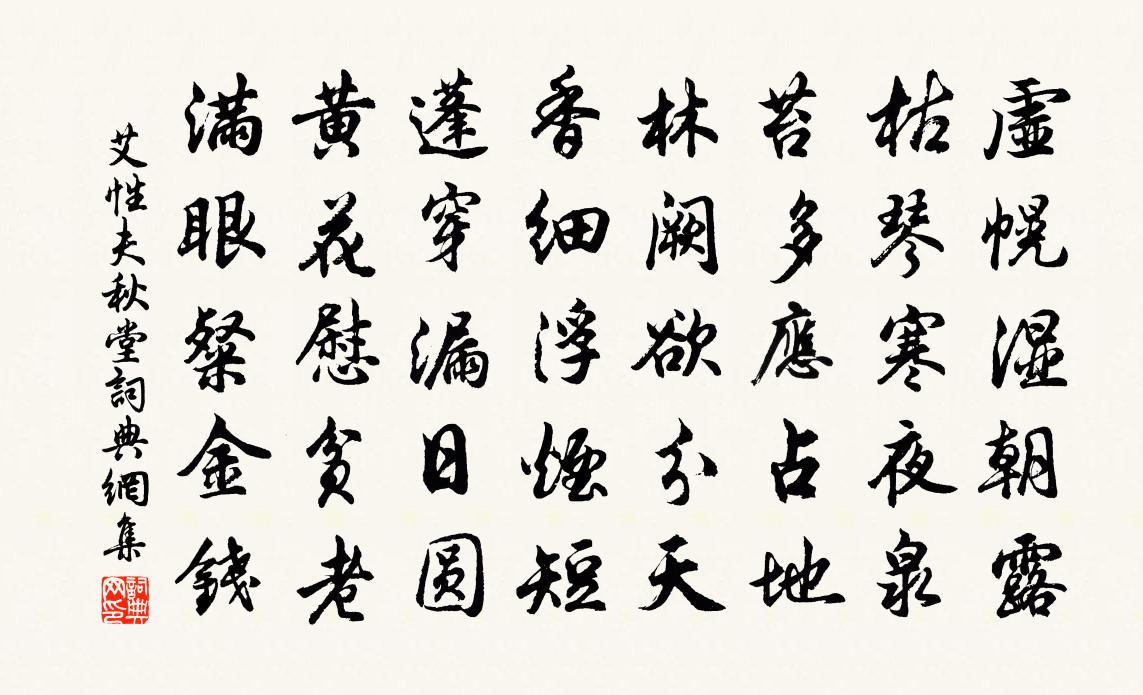 虛幌湿朝露
枯琴寒夜泉
苔多應占地
林闕欲分天
香細浮煙短
蓬穿漏日圓
黃花慰貧老
滿眼粲金錢
艾性夫秋堂詞典網集
詞典網印